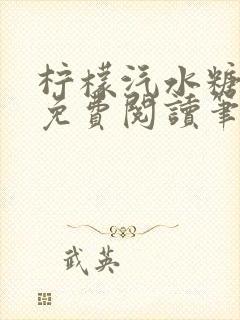 柠檬汽水糖
免費閱讀筆
武英